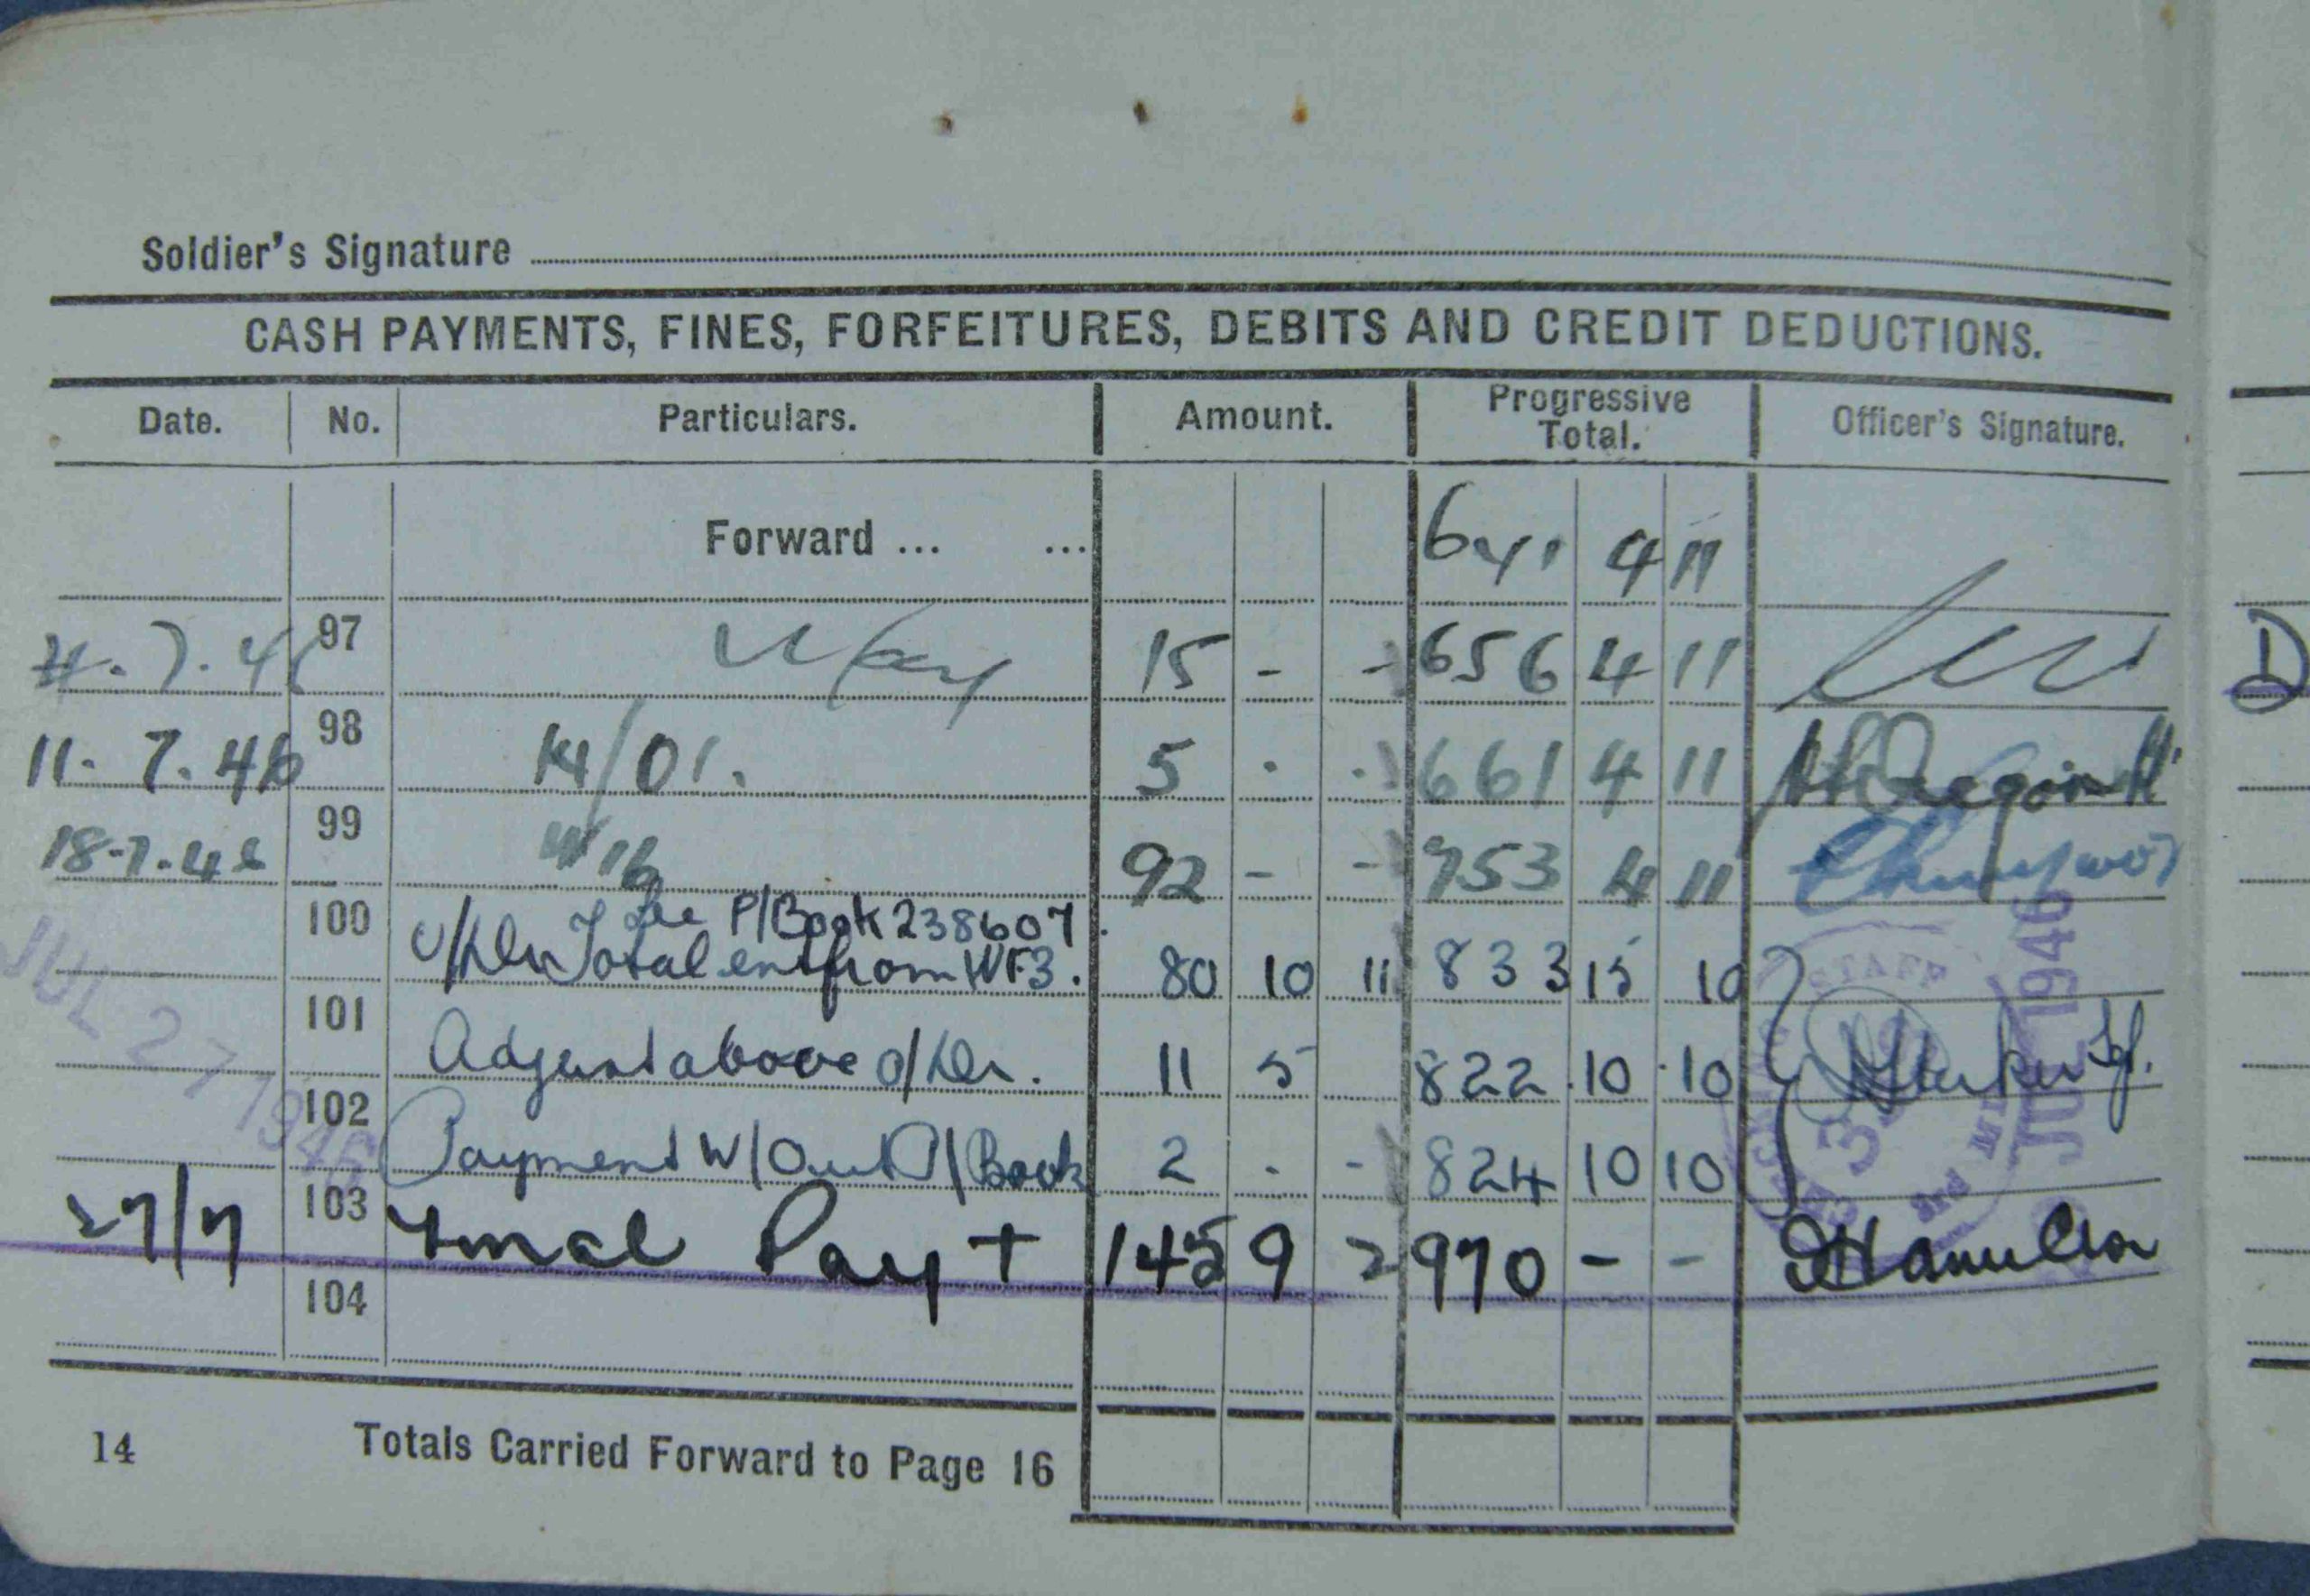 Soldier's Signature
CASH PAYMENTS, FINES, FORFEITURES, DEBITS AND CREDIT DEDUCTIONS.
Date. No. Particulars. Amount. Progressive Total. Officer's Signature.
Forward ... ... 641 4 11
97 15 - - 656 4 11
11. 7. 46 98 5 . . 661 4 11
18-7-46 99 92 - - 753 4 11
See P/Book 238607.
100 Total ent from WF3. 80 10 11 833 15 10
101 Adjust above o/Dr. 11 5 822 10 10
102 Payment W/Out P/Book 2 . - 824 10 10
27/7 103 Final Pay t 145 9 2 970 - - Hamilton
104
JUL 27 1946
STAFF
JUL 1946
14 Totals Carried Forward to Page 16
D